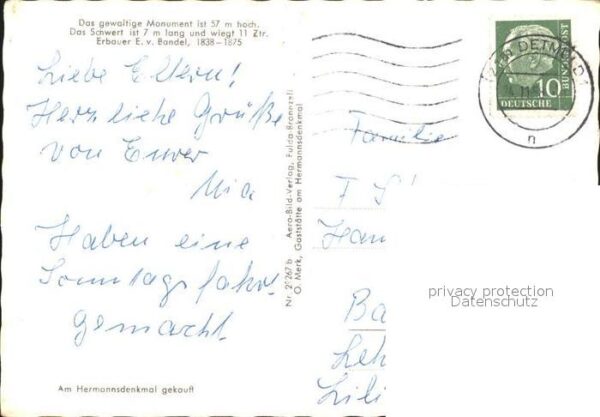 Das gewaltige Monument ist 57 m hoch.
Das Schwert ist 7 m lang und wiegt 11 Ztr.
Erbauer E. v. Bandel, 1838–1875
Liebe Eltern!
Herzliche Grüße
von Eurer
Haben eine
Sonntagsfahrt
gemacht.
Am Hermannsdenkmal gekauft
Nr. 2°267b Aero-Bild-Verlag, Fulda-Bronnzell
O. Merk, Gaststätte am Hermannsdenkmal
DETMOLD
10
DEUTSCHE
BUNDESPOST
n
Familie
Han
Ba
Leh
Lili
privacy protection
Datenschutz